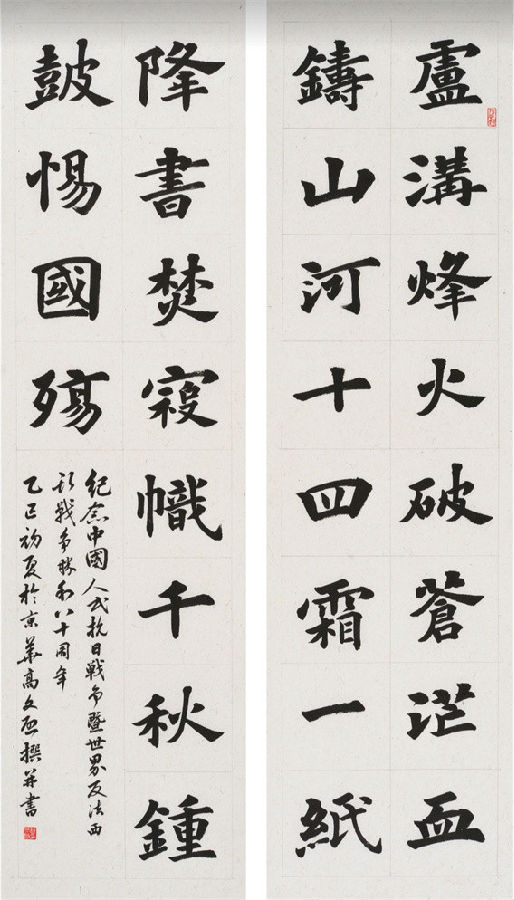 盧溝烽火破蒼茫血
鑄山河十四霜一紙
降書焚寇幟千秋鍾
皷惕國殤
紀念中國人民抗日戰爭暨世界反法西
斯戰爭勝利八十周年
乙巳初夏於京華高文撰并書